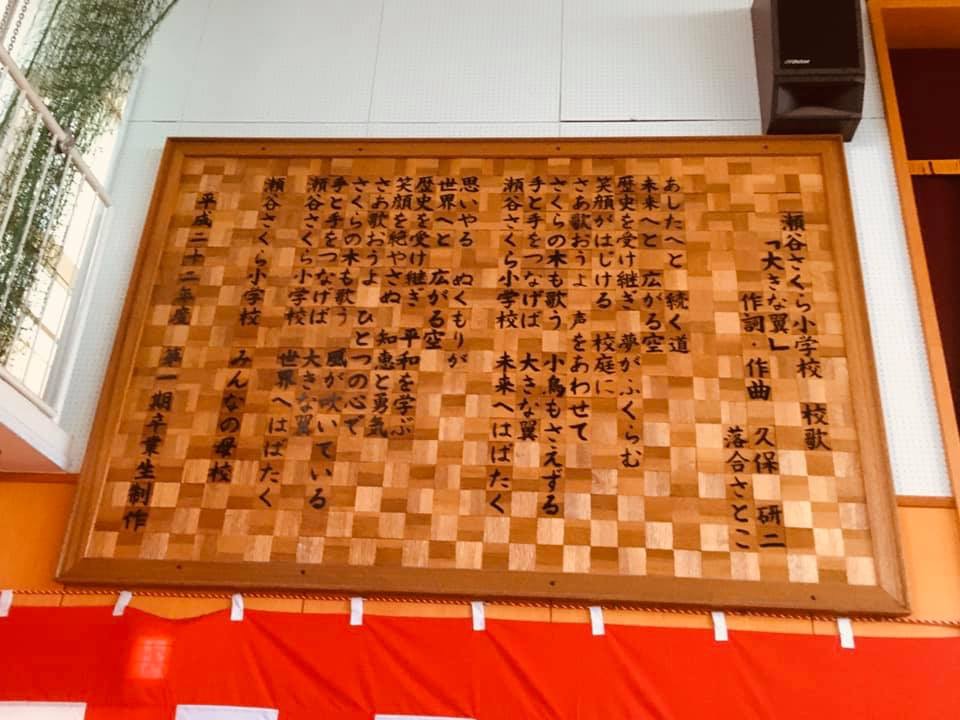 瀬谷さくら小学校　校歌
「大きな翼」
作詞・作曲　久保　研二
落合さとこ
あしたへと　続く道
未来へと　広がる空
歴史を受け継ぎ　夢がふくらむ
笑顔がはじける　校庭に
さあ歌おうよ　声をあわせて
さくらの木も歌う　小鳥もさえずる
手と手をつなげば　大きな翼
瀬谷さくら小学校　未来へはばたく
思いやる　ぬくもりが
世界へと　広がる空
歴史を受け継ぎ　平和を学ぶ
笑顔を絶やさぬ　知恵と勇気
さあ歌おうよ　ひとつの心で
さくらの木も歌う　風が吹いている
手と手をつなげば　大きな翼
瀬谷さくら小学校　世界へはばたく
瀬谷さくら小学校　みんなの母校
平成二十二年度　第一期卒業生制作
Victor